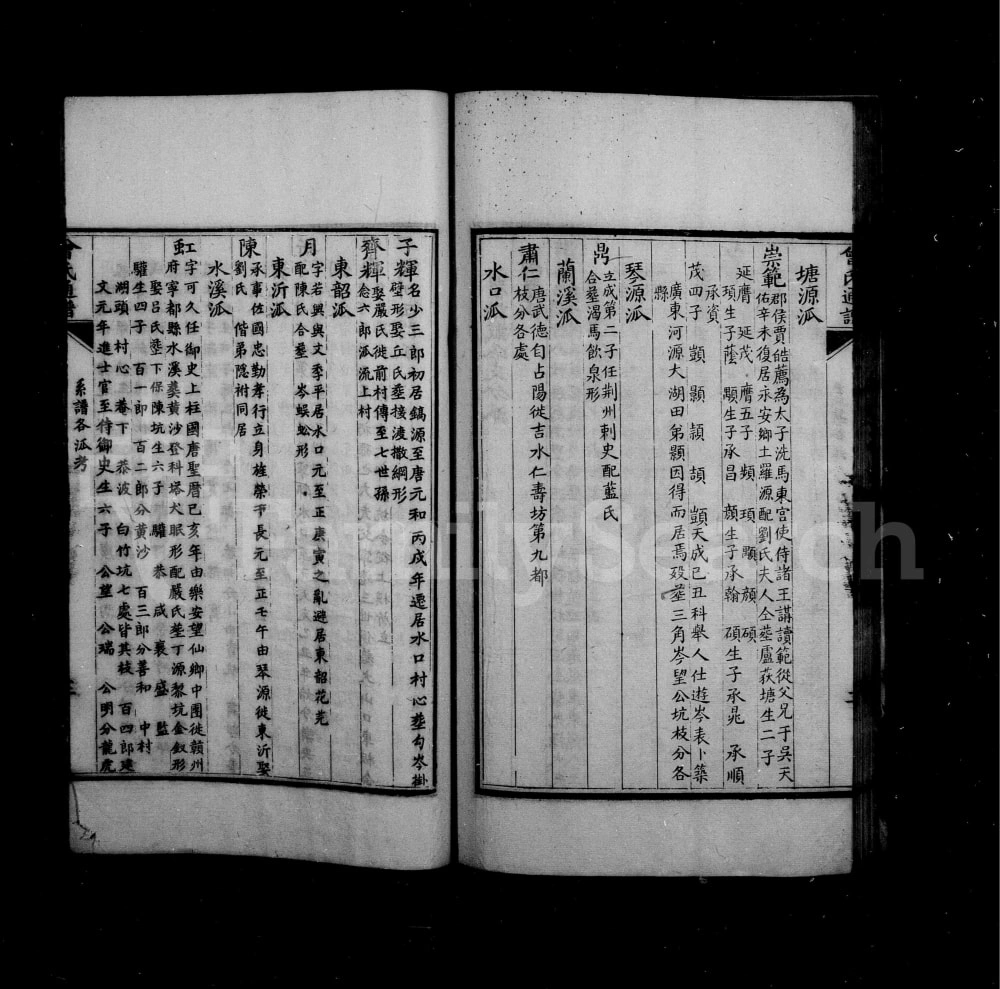 曾氏通譜
塘源派
崇範 郡侯賈皓薦為太子洗馬東宮使侍諸王講讀範從父兄于吳天
佑辛未復居永安鄉土羅源配劉氏夫人仝塟盧荻塘生二子
延膺 延茂 膺五子 頻 頊 顒 顏 碩
頊生子蔭 顒生子承昌 顏生子承翰 碩生子承晁 承順
承資
茂四子 顗 顥 頴 頏 顗天成己丑科舉人仕遊岑表卜築
廣東河源大湖田弟顥因得而居焉歿塟三角岑望公坑枝分各
縣
琴源派
鼎 立成第二子任荆州刺史配藍氏
合塟渴馬飲泉形
蘭溪派
肅仁 唐武德自占陽徙吉水仁壽坊第九都
枝分各處
水口派
子輝 名少三郎初居鎬源至唐元和丙戌年遷居水口村心塟勾岑掛
壁形娶丘氏塟接渡撒綱形
齊輝 娶嚴氏徙前村傳至七世孫
念六郎派流上村
東韶派
月 字若興與文季平居水口元至正庚寅之亂避居東韶花芫
配陳氏合塟 岑蜈蚣形
東沂派
陳 承事佐國忠勤孝行立身旌榮帀長元至正壬午由琴源徙東沂娶
劉氏 偕弟隱祔同居
水溪派
虹 字可久任御史上柱國唐聖曆己亥年由樂安望仙鄉中團徙贛州
府寧都縣水溪塟黄沙登科塔犬眠形配嚴氏塟丁源黎坑金釵形
娶呂氏塟下保陳坑生六子 驩 恭 咸 襄 盛 監
驩生四子 百一郎 百二郎分黄沙 百三郎分善和 中村
湖頭 村心 菴下 恭波 白竹坑七處皆其枝 百四郎建
文元年進士官至待御史生六子 公望 公瑞 公明分龍虎
系譜各派考
曾氏通譜
FamilySearch